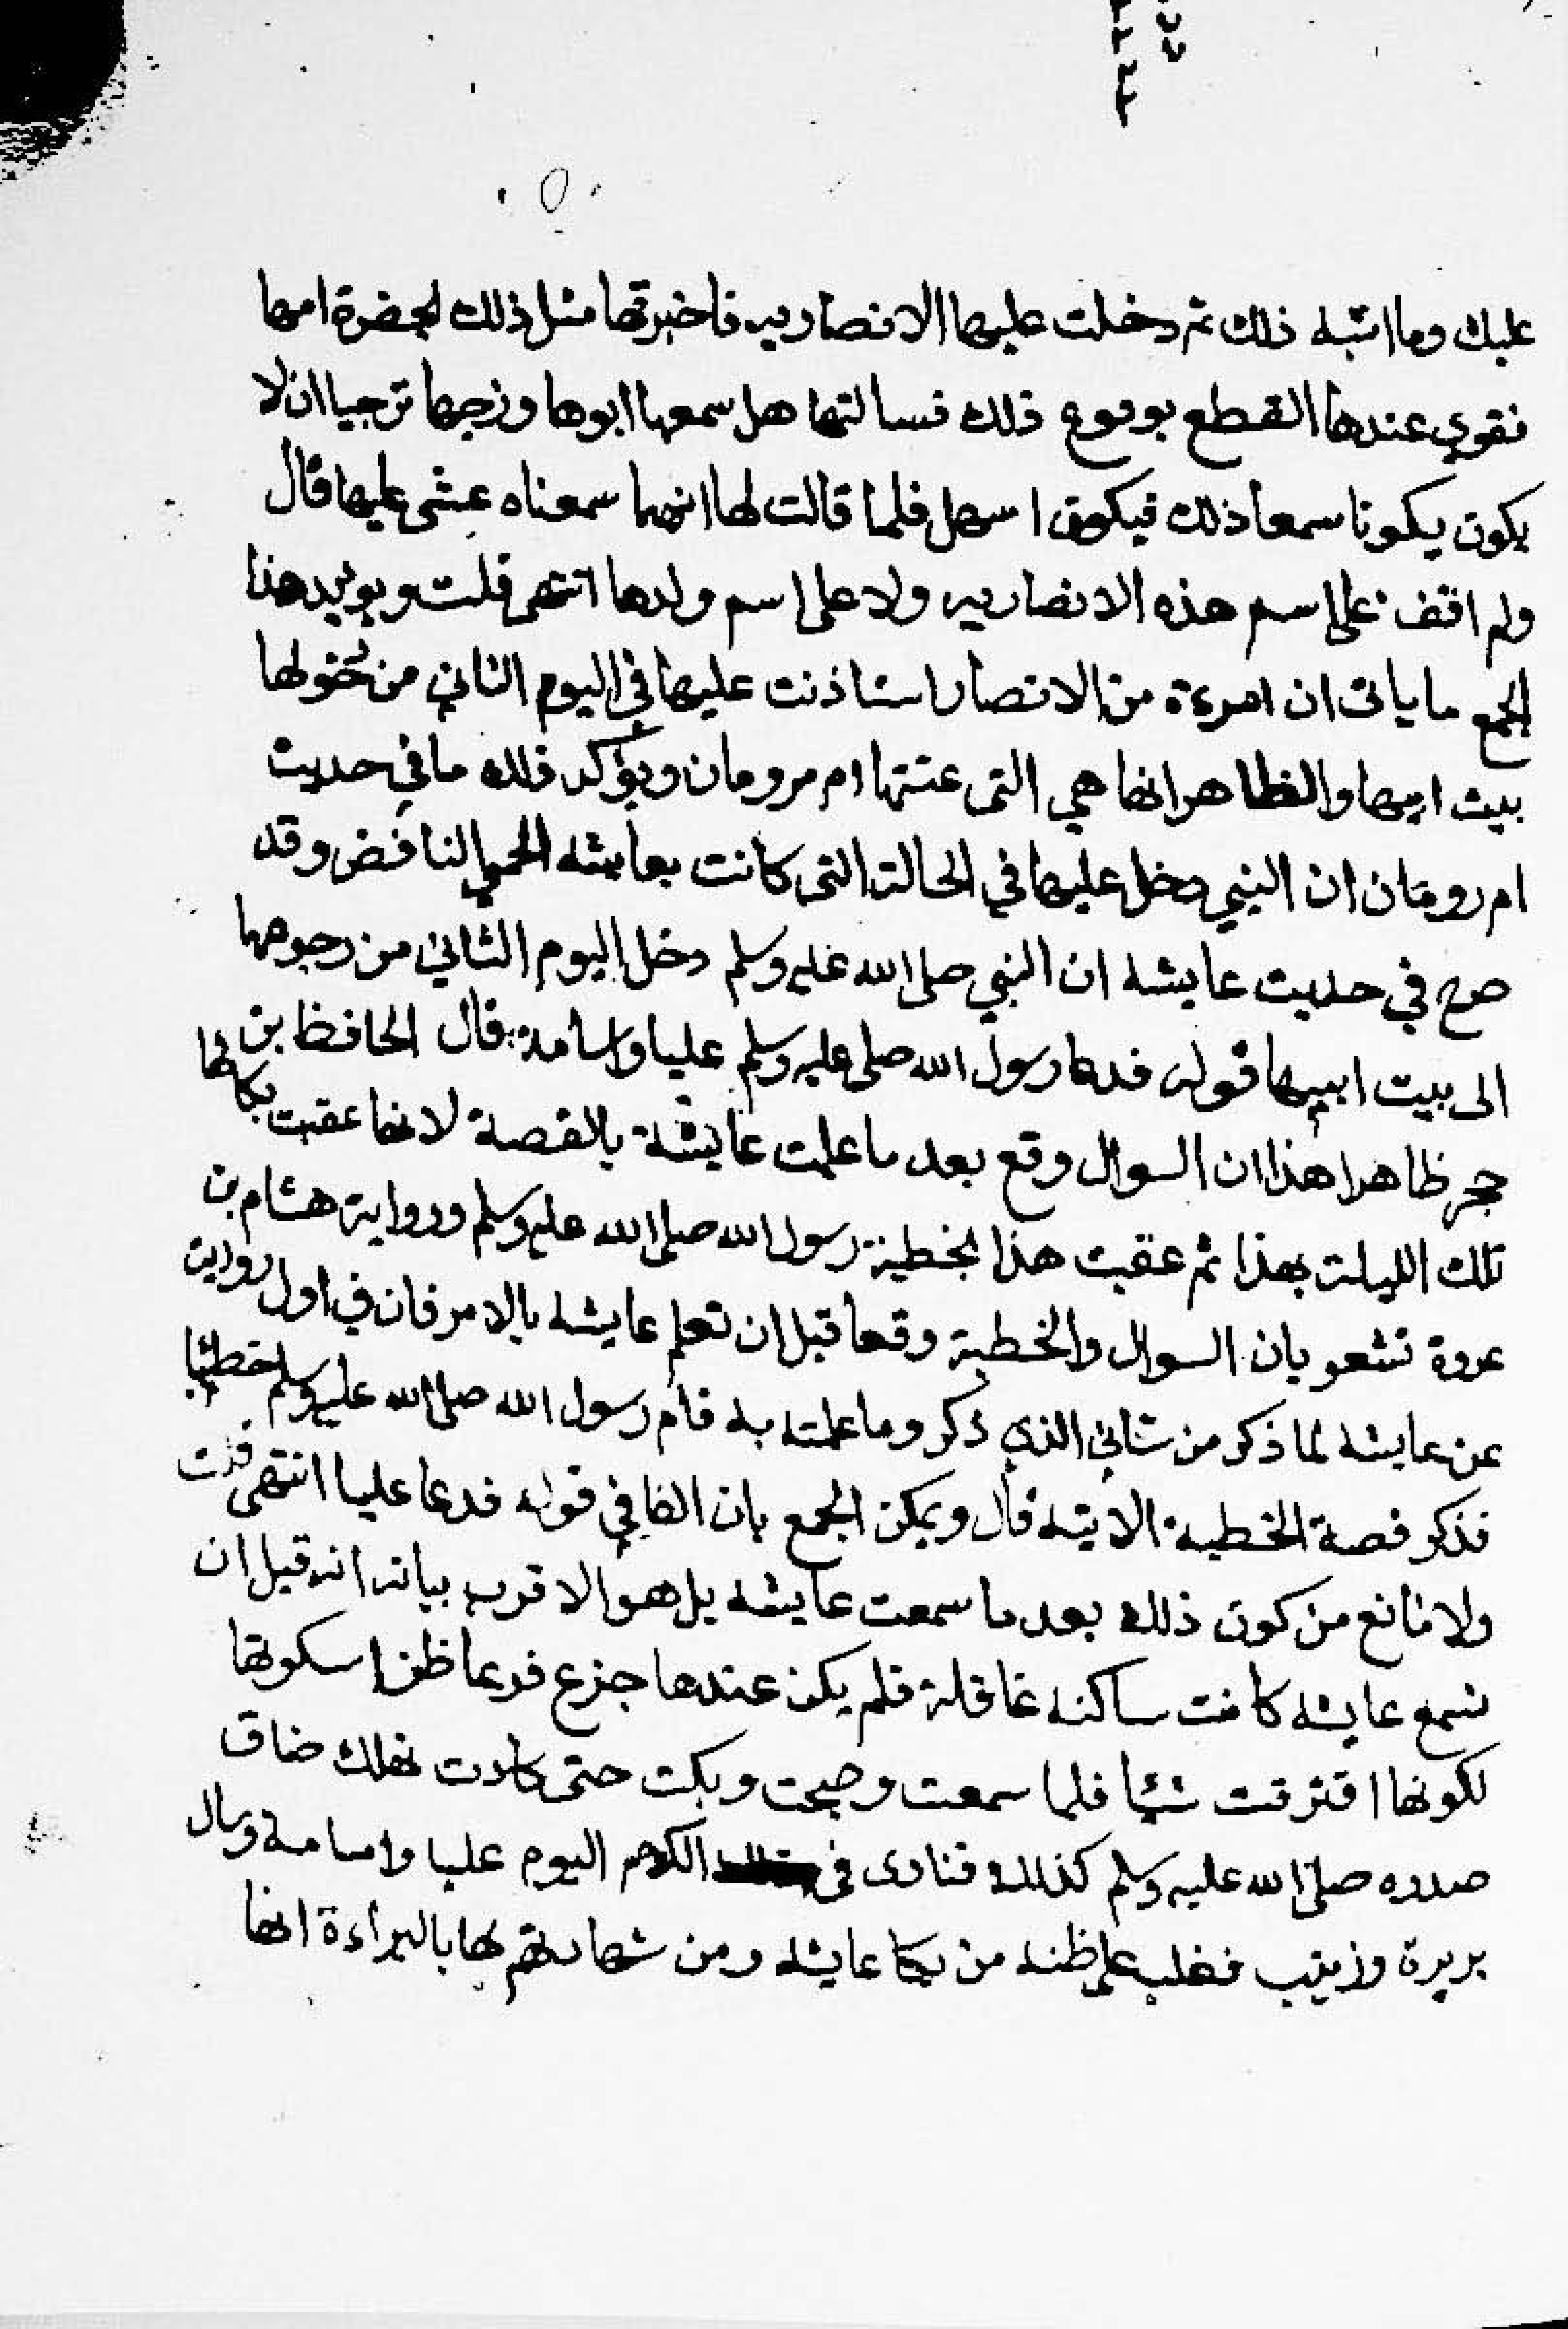 عليك وما اشبه ذلك ثم دخلت عليها الانصاريه فاخبرتها مثل ذلك بحضرة امها
فقوي عندها القطع بوقوع ذلك فسالتها هل سمعها ابوها وزجها ترجيا ان لا
يكون يكونا سمعا ذلك فيكون اسهل فلما قالت لها انهما سمعناه غشى عليها قال
ولم اقف على اسم هذه الانصاريه ولا على اسم ولدها انتهى قلت ويويد هذا
الجمع ما ياتى ان امرءة من الانصار استاذنت عليها في اليوم الثاني من دخولها
بيت ابيها والظاهر انها هي التى عنتها ام مرومان ويؤكد ذلك ما في حديث
ام رومان ان النبي دخل عليها في الحالة التى كانت بعايشه الحمى النافض وقد
صرح في حديث عايشه ان النبي صلى الله عليه وسلم دخل اليوم الثاني من رجوعها
الى بيت ابيها قوله فدعا رسول الله صلى عليه وسلم عليا واسامة قال الحافظ بن
حجر ظاهرا هذا ان السوال وقع بعد ما علمت عايشة بالقصة لانها عقبت بكائها
تلك الليلة بهذا ثم عقبت هذا بخطبة رسول الله صلى الله عليه وسلم ورواية هشام بن
عروة تشعر بان السوال والخطبة وقعا قبل ان تعلم عايشه بالامر فان في اول رواية
عن عايشه لما ذكر من شاني الذي ذكر وما علمت به قام رسول الله صلى الله عليه وسلم خطيبا
فذكر قصة الخطبة الاتيه قال ويمكن الجمع بان الفا في قوله فدعا عليا انتهى قلت
ولا مانع من كون ذلك بعد ما سمعت عايشه بل هو الاقرب بيانه انه قبل ان
تسمع عايشه كانت ساكنه غافلة فلم يكن عندها جزع فربما ظن اسكوتها
لكونها اقترفت شيا فلما سمعت وصيحت وبكت حتى كادت تهلك ضاق
صدره صلى الله عليه وسلم كذلك فنادى فى الكلام اليوم عليا واسامة وسال
بريرة وزينب فغلب على ظنه من بكا عايشه ومن شهادتهم لها بالبراءة انها